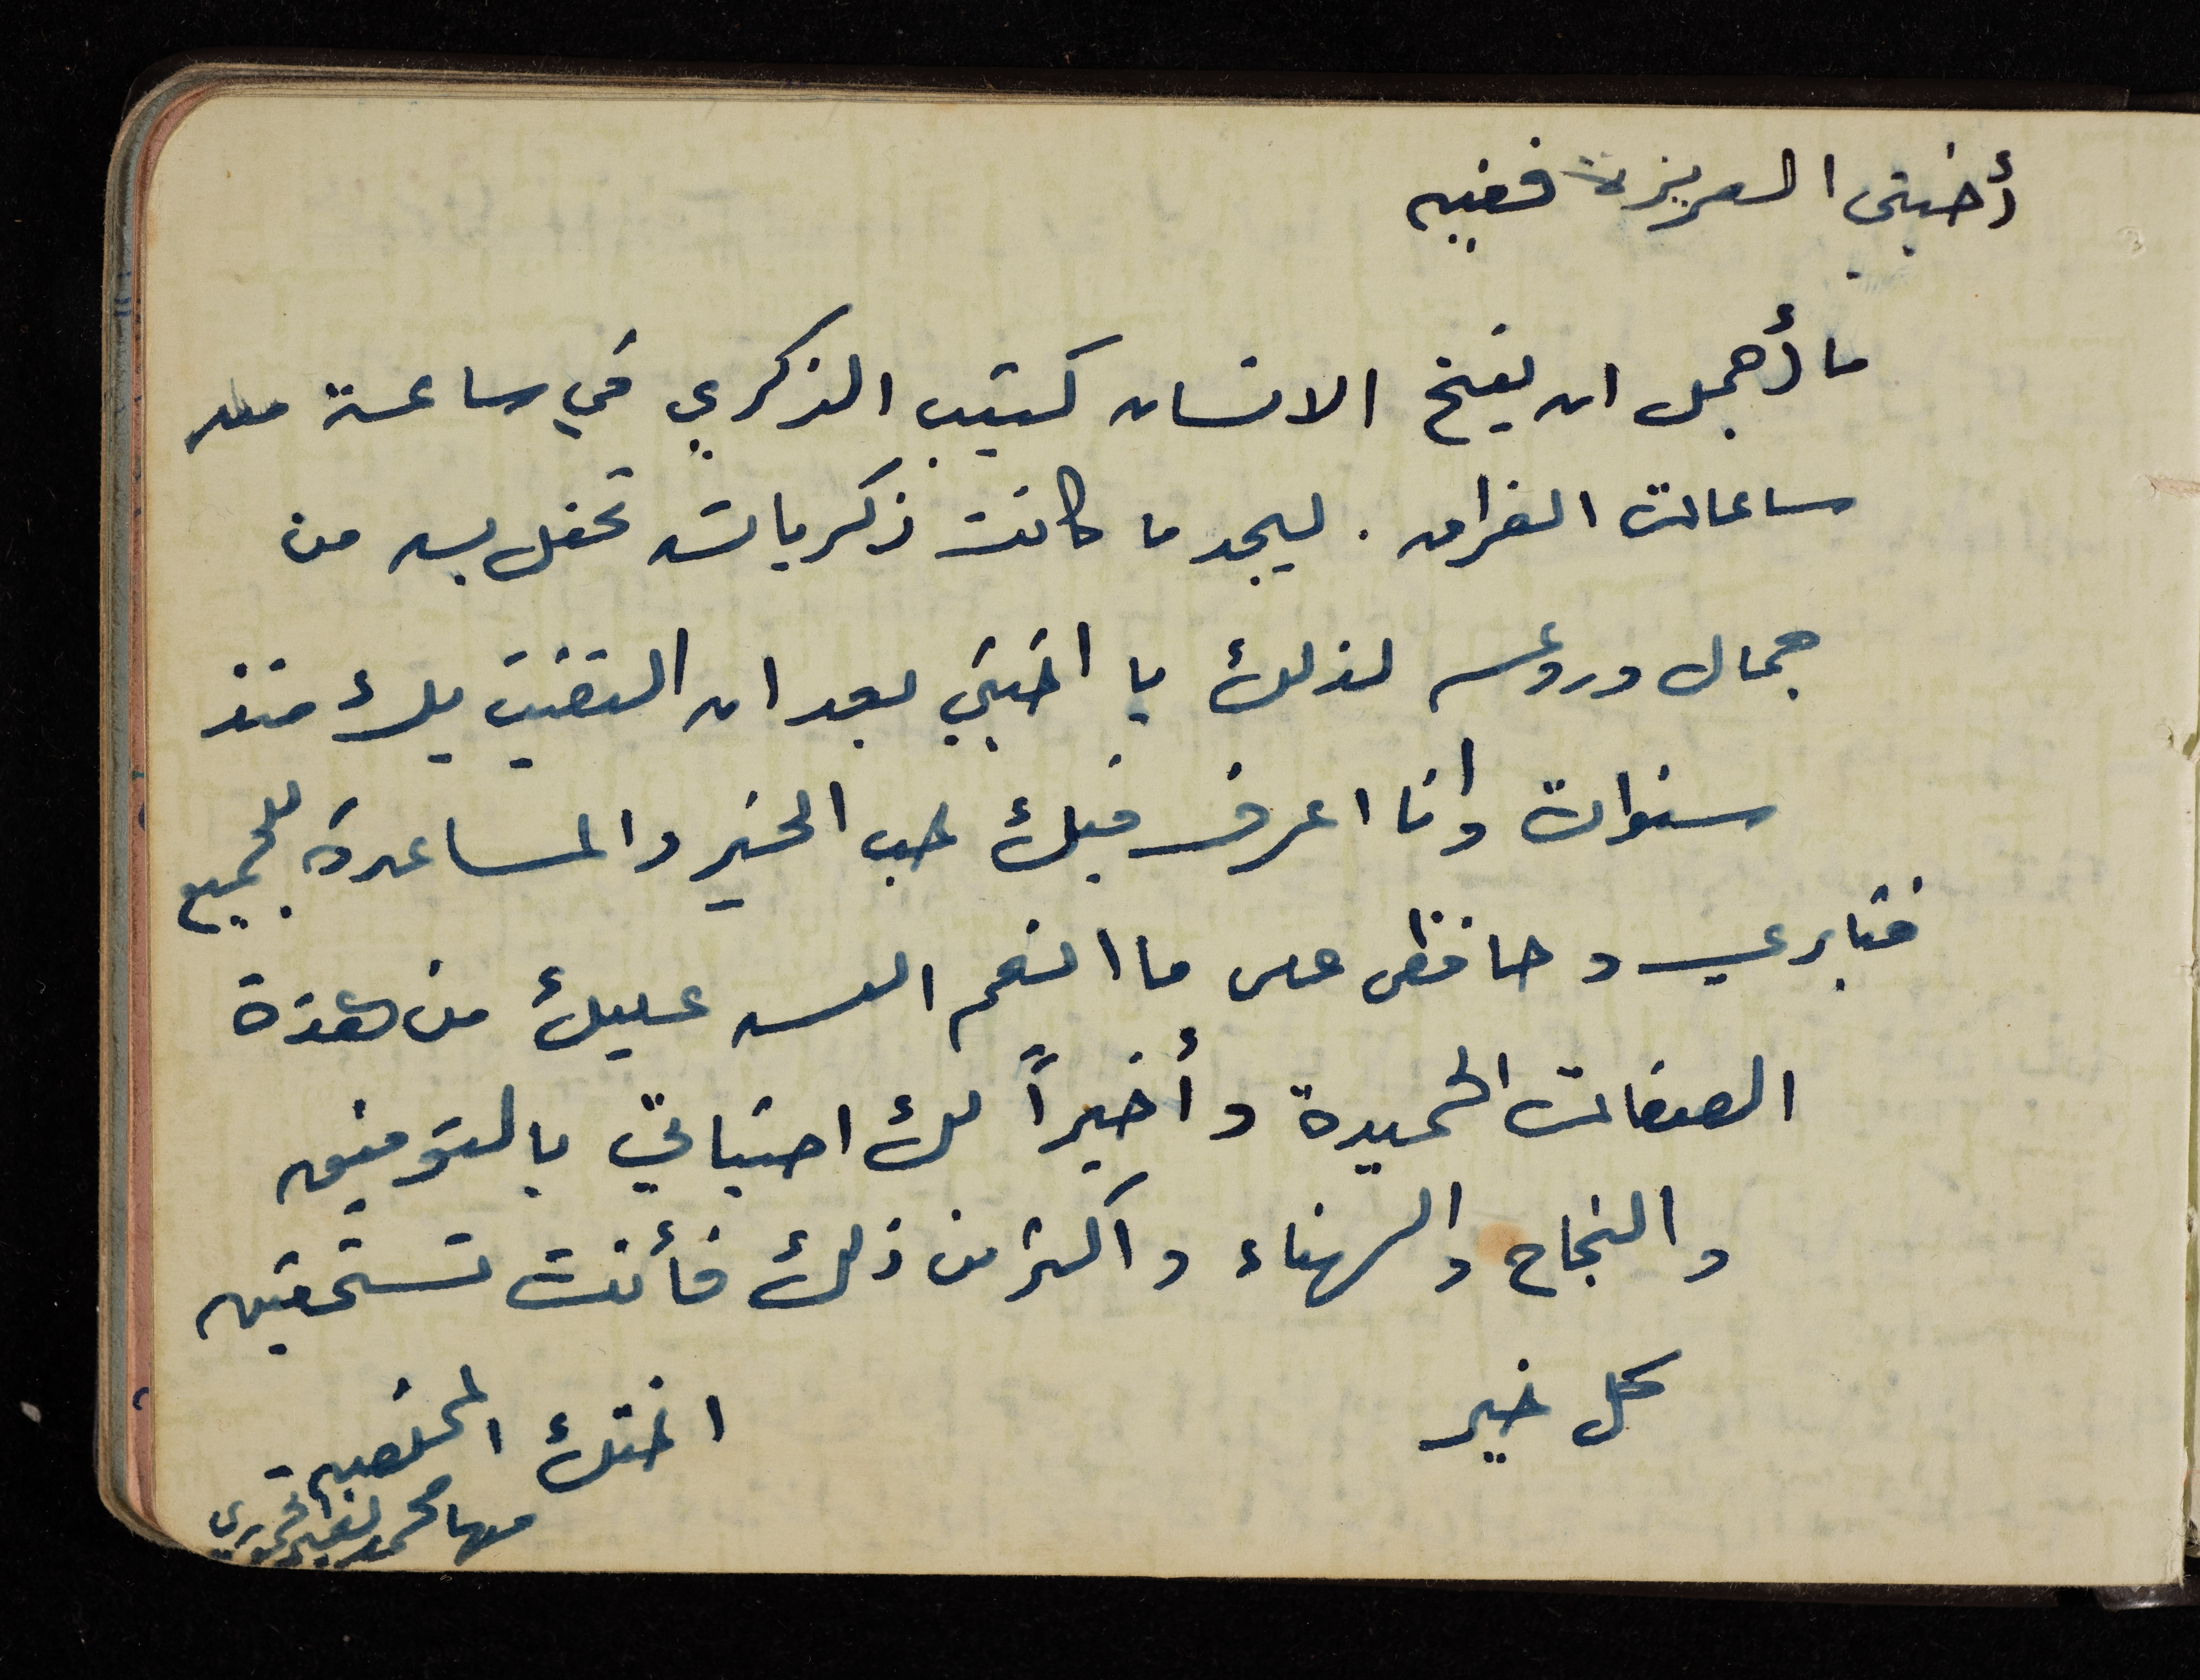 أختي العزيزة فغيه
ما أجمل ان يفتح الانسان كتيب الذكري في ساعة من
ساعات الفراق . ليجد ما كانت ذكرياته تحفل به من
جمال وروعه لذلك يا اختي بعد ان التقيت بك منذ
سنوات وانا اعرف فيك حب الخير والمساعدة للجميع
فثابري وحافظى على ما انعم الله عليك من هذة
الصفات الحميدة وأخيراً لك امنياتي بالتوفيق
والنجاح والهناء واكثر من ذلك فأنت تستحقين
كل خير
اختك المخلصه
مها محمد